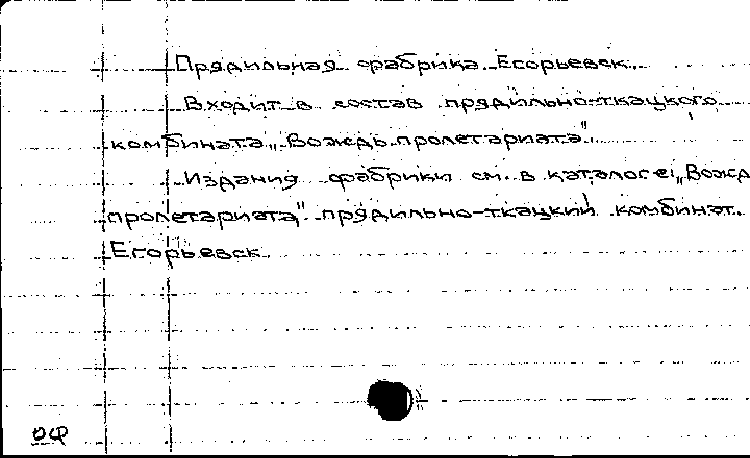 Прядильная фабрика. Егорьевск.
Входит в состав прядильно-ткацкого
комбината „Вождь пролетариата".
Издания фабрики см. в каталоге: „Вожд
пролетариата" прядильно-ткацкий комбинат.
Егорьевск.